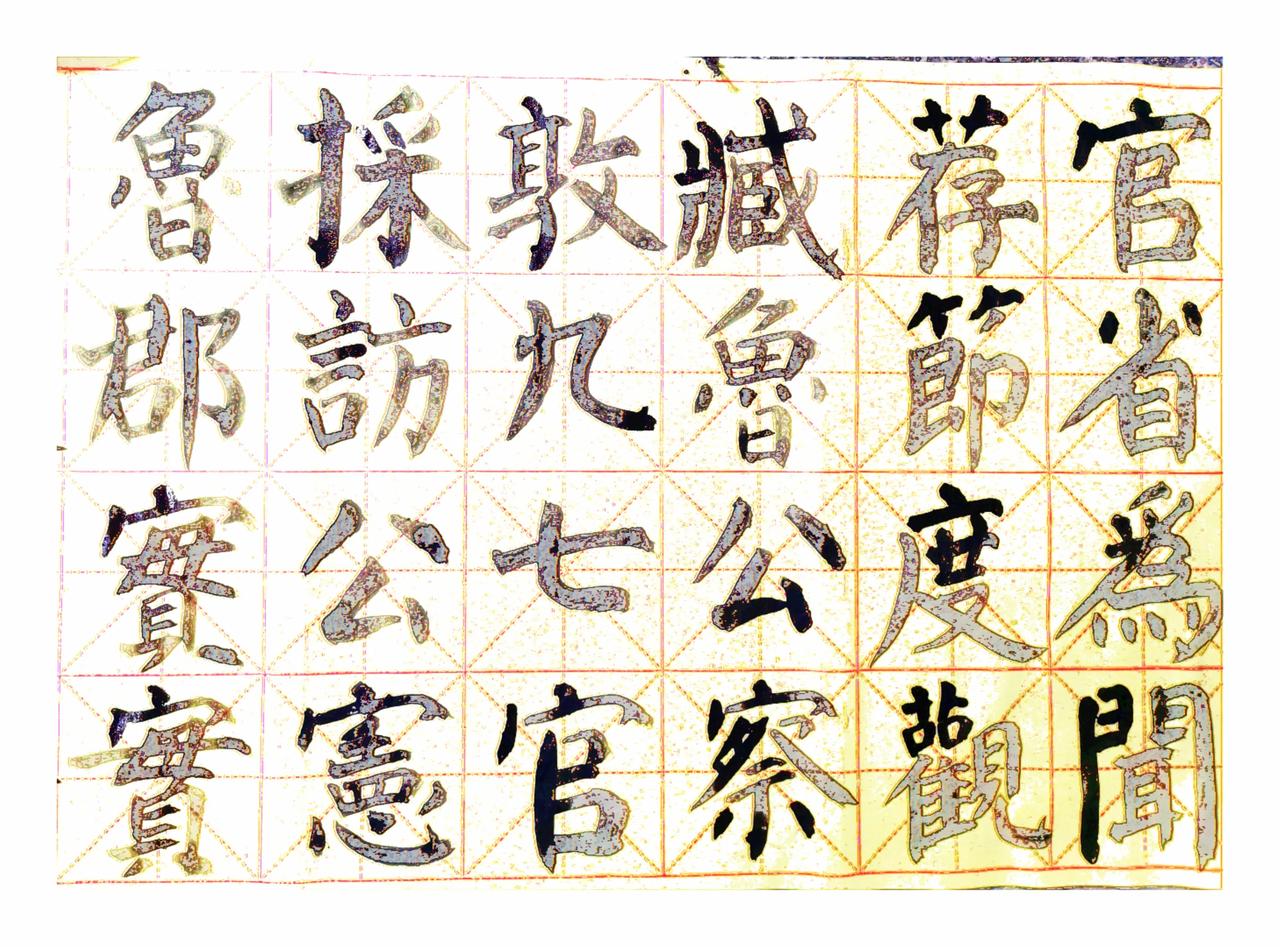 官省爲聞
荐節度觀
臧魯公察
敦九七官
採訪公憲
魯郡實實